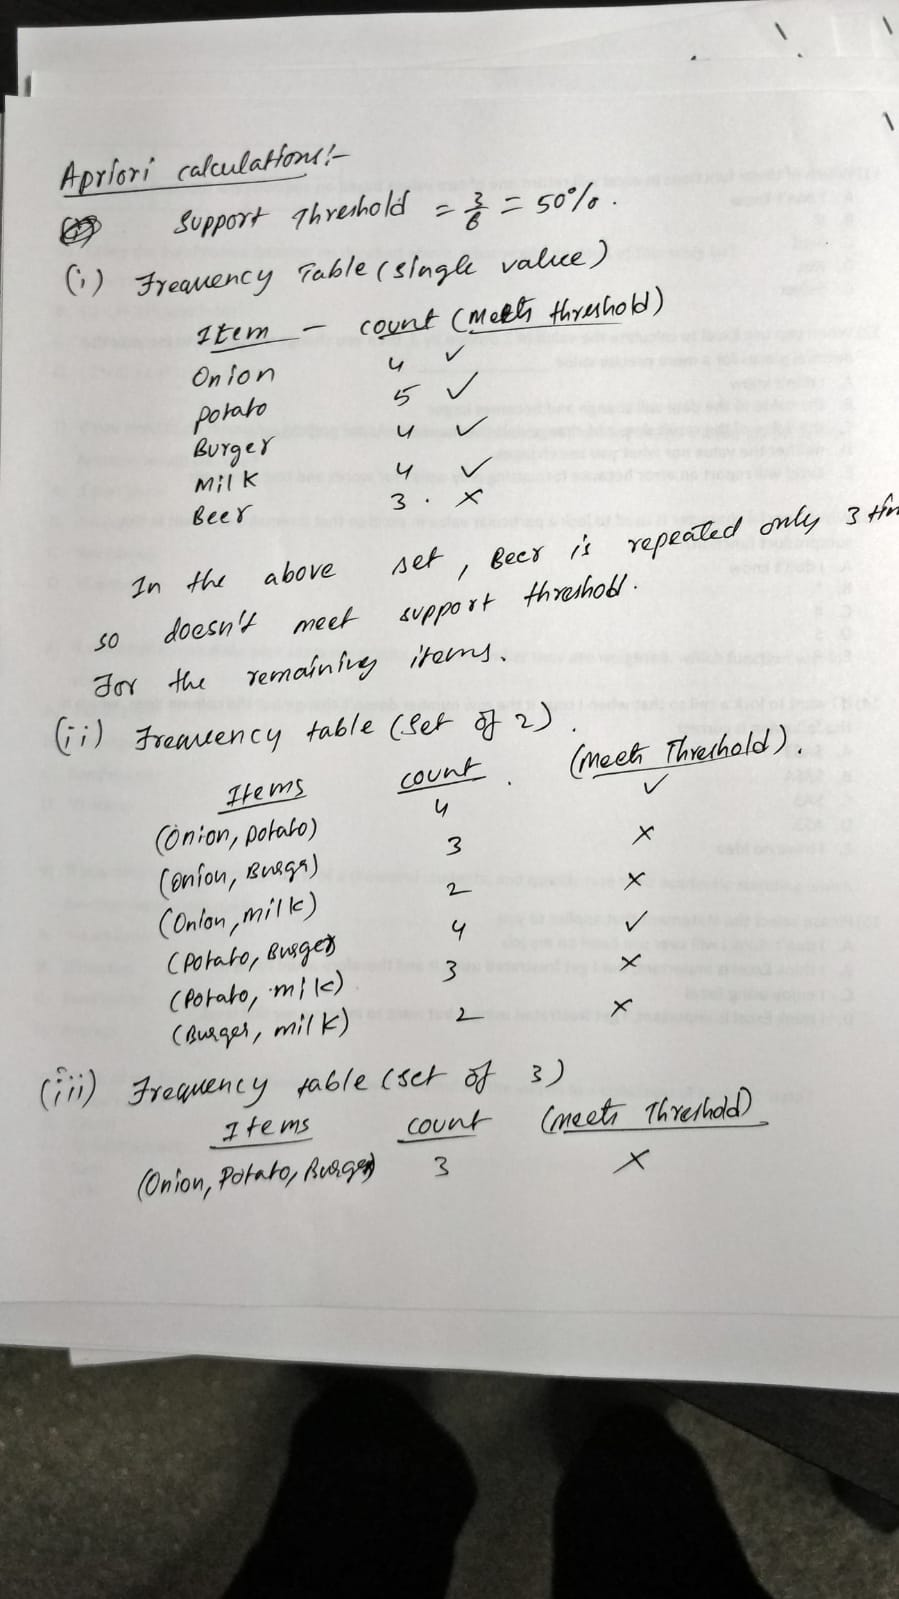 Apriori calculations:-
Support Threshold = 3/6 = 50%.
(i) Frequency Table (single value)
Item - count (Meets threshold)
Onion 4 ✓
potato 5 ✓
Burger 4 ✓
Milk 4 ✓
Beer 3. ✗
In the above set, Beer is repeated only 3
so doesn't meet support threshold.
For the remaining items.
(ii) Frequency table (Set of 2).
Items count. (Meets Threshold).
(Onion, potato) 4 ✓
(Onion, Burger) 3 ✗
(Onion, milk) 2 ✗
(Potato, Burger) 4 ✓
(Potato, milk) 3 ✗
(Burger, milk) 2 ✗
(iii) Frequency table (set of 3)
Items count (meets Threshold)
(Onion, Potato, Burger) 3 ✗